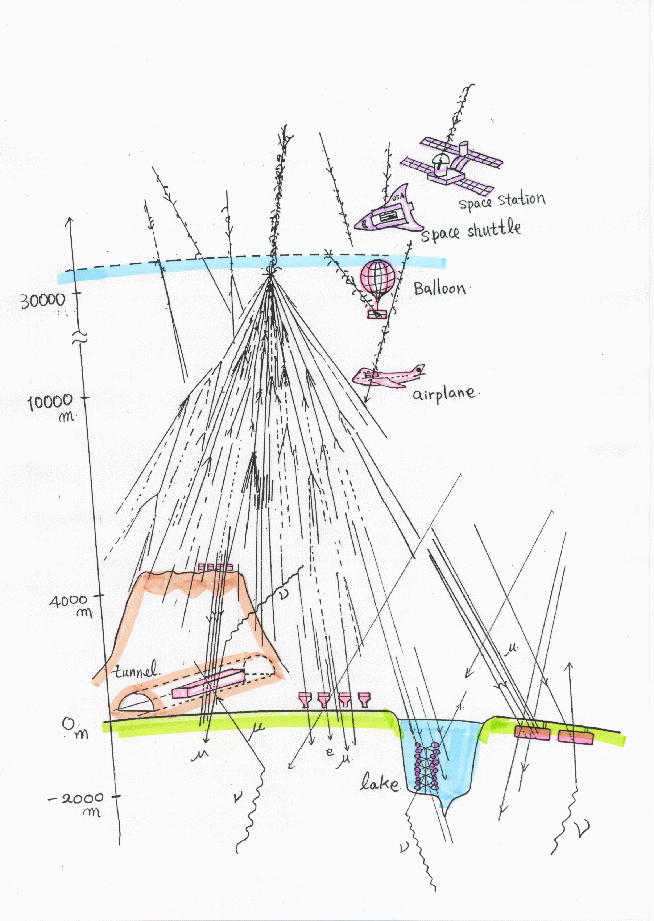 space station
USA
space shuttle
30000
Balloon.
10000
m.
airplane.
4000
m
ν
μ
tunnel
0
m
μ
μ
e
μ
lake
-2000
m
ν
ν
ν